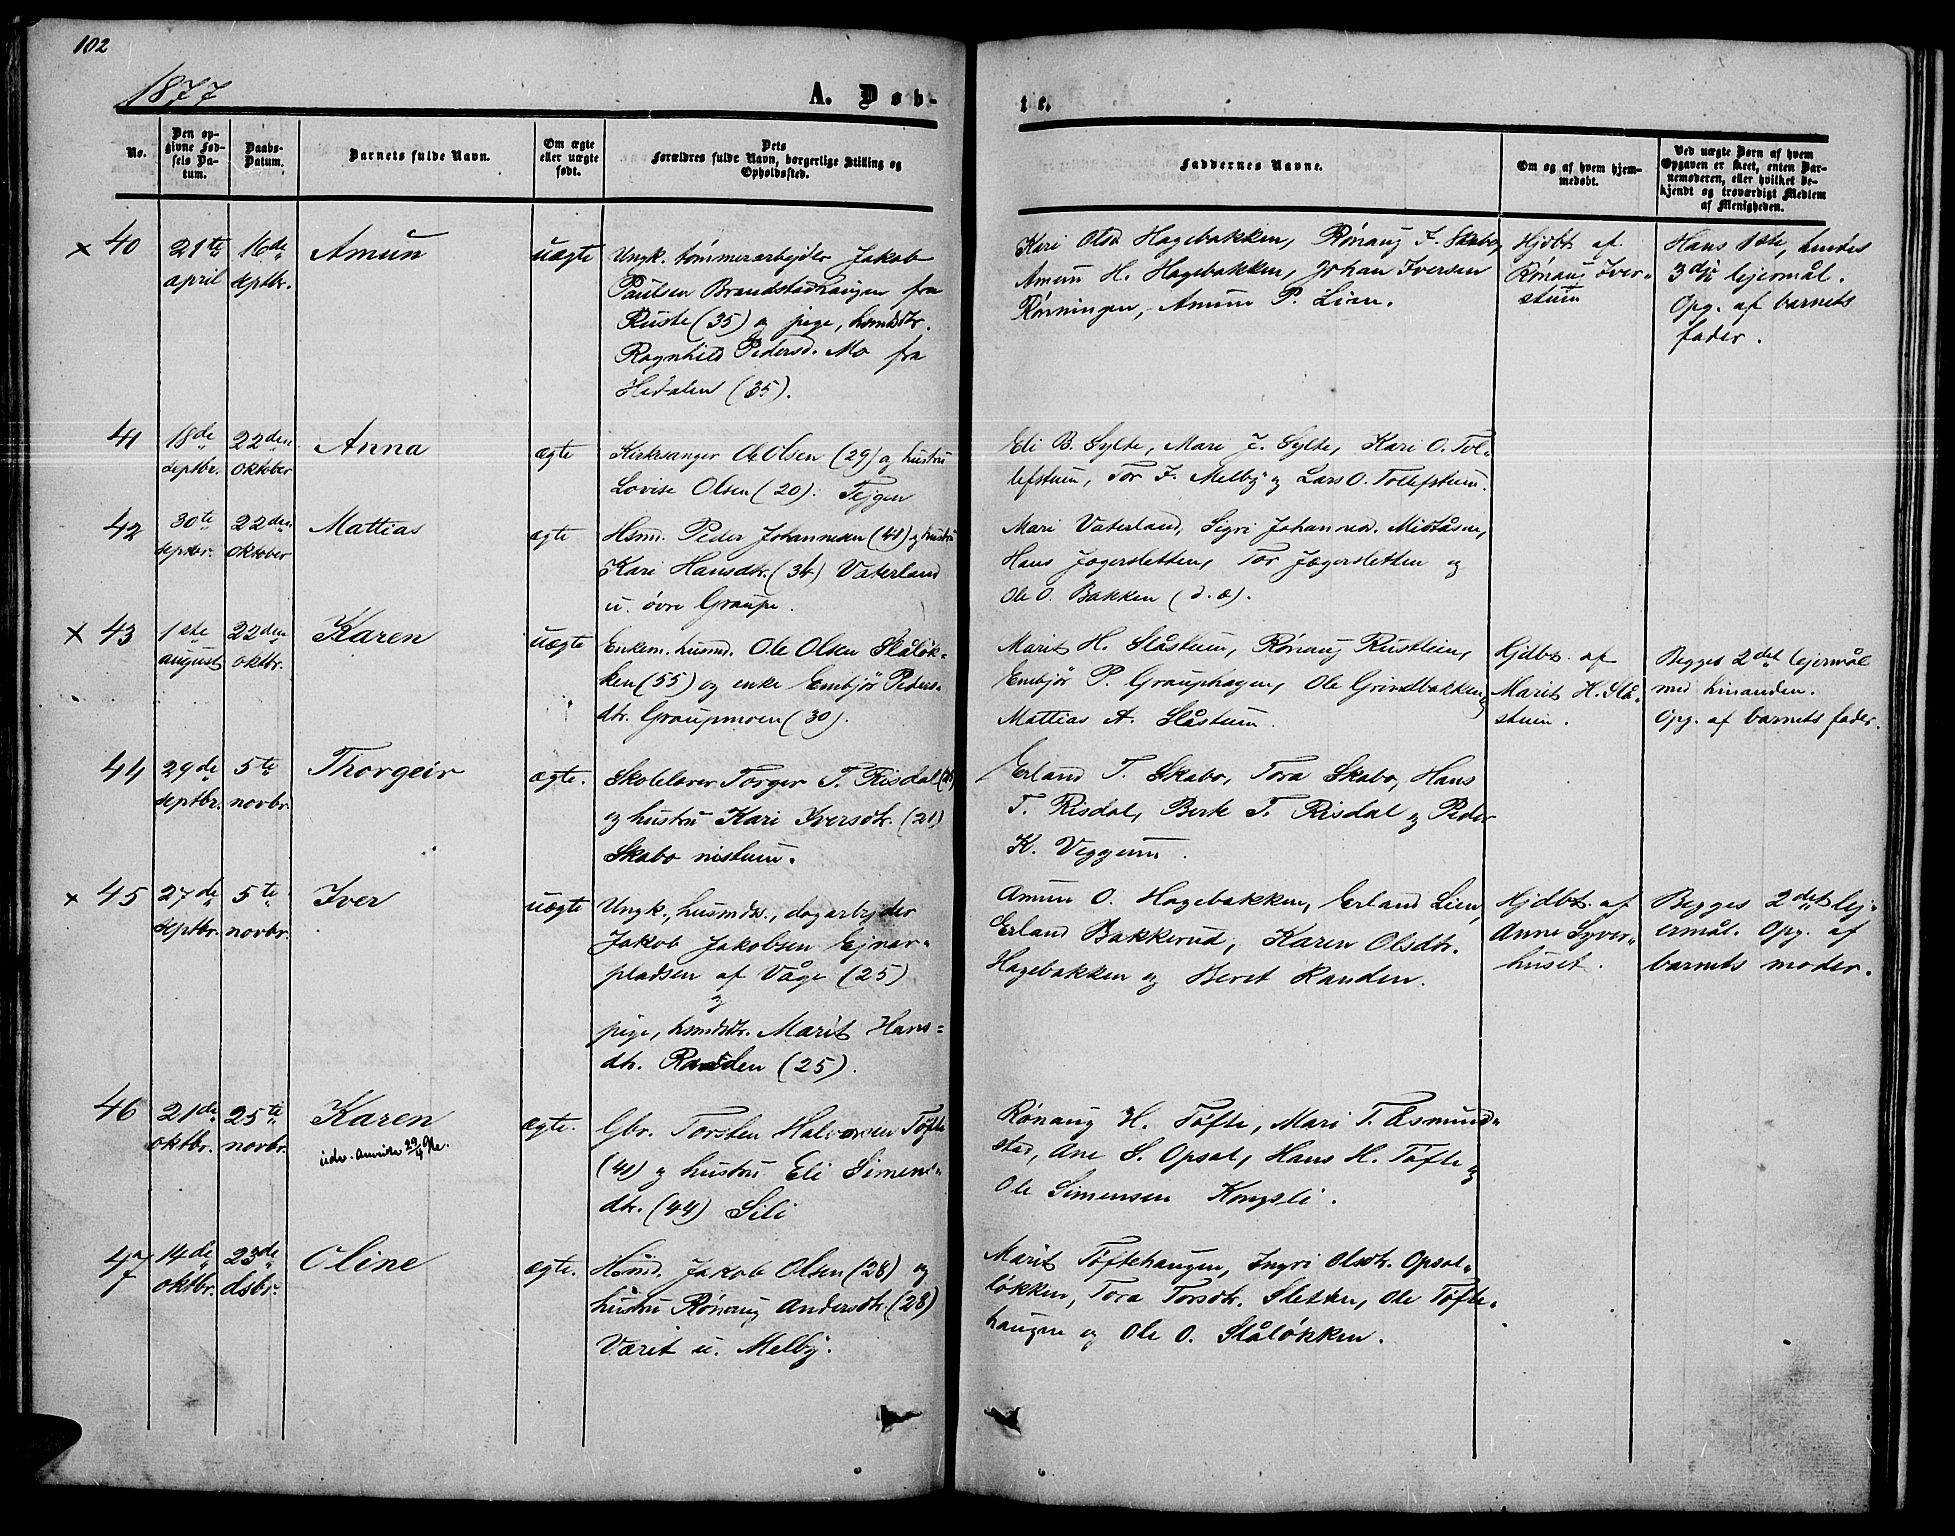 102
1877
A. Døb-
te.
No.
Den op-
givne Fød-
sels Da-
tum.
Daabs-
Datum.
Barnets fulde Navn.
Om ægte
eller uægte
født.
Dets
Forældres fulde Navn, borgerlige Stilling og
Opholdssted.
Faddernes Navne.
Om og af hvem hjem-
medøbt.
Ved uægte Børn af hvem
Opgaven er skeet, enten Bar-
nemoderen, eller hvilket be-
kjendt og troværdigt Medlem
af Menigheden.
x 40
21te
april
16de
septbr.
Amun
uægte
Ungk. tømmerarbejder Jakob
Paulsen Brandstadhaugen fra
Ruste (35) og pige, hsmdstr.
Ragnhild Pedersd. Mo fra
Hedalen (35).
Kari Olsd. Hagebakken, Rønaug I. Skabo,
Amun H. Hagebakken, Johan Iversen
Rønningen, Amun P. Lien.
Hjdbt. af
Rønaug Iver-
stuen
Hans 1ste, hendes
3dje lejermål.
Opg. af barnets
fader.
41
18de
septbr.
22den
oktober
Anna
ægte
Kirkesanger O. Olsen (29) og hustru
Lovise Olsen (20): Tejgen
Eli B. Sylte, Mari J. Sylte, Kari O. Tol-
lefstuen, Tor J. Melby og Lars O. Tollefstuen.
42
30te
septbr.
22den
oktober
Mattias
ægte
Hsmd. Peder Johannesen (41) og hustru
Kari Hansdtr. (34) Vaterland
u. øvre Graupe.
Mari Vaterland, Sigri Johannesd. Midtåsen,
Hans Jægersletten, Tor Jægersletten og
Ole O. Bakken (d. æ).
x 43
1ste
august
22den
oktbr.
Karen
uægte
Enkem. husmd. Ole Olsen Ståløk-
ken (55) og enke Embjør Peders-
dtr. Graupmoen (30).
Marit H. Slåstuen, Rønaug Rustlien,
Embjør P. Grauphagen, Ole Grindbakken,
Mattias A. Slåstuen.
Hjdbt. af
Marit H. Slå-
stuen.
Begges 2det lejermål
med hinanden.
Opg. af barnets fader.
44
29de
septbr.
5te
novbr.
Thorgeir
ægte.
Skolelærer Torger T. Risdal
og hustru Kari Iversdtr. (21)
Skabo nistuen.
Erland T. Skabo, Tora Skabo, Hans
T. Risdal, Berte T. Risdal og Peder
K. Veggum.
x 45
27de
septbr.
5te
novbr.
Iver
uægte
Ungk., husmds., dagarbejder
Jakob Jakobsen Ejnar-
pladsen af Våge (25)
og
pige, hsmdsdtr. Marit Hans-
dtr. Randen (25).
Amun O. Hagebakken, Erland Lien,
Erland Bakkerud, Karen Olsdtr.
Hagebakken og Beret Randen.
Hjdbt. af
Anne Syver-
huset.
Begges 2det lej-
ermål. Opg. af
barnets moder.
46
21de
oktbr.
25te
novbr.
Karen
udv. Amerika 29/4
ægte.
Gbr. Torsten Halvorsen Tøfte
(41) og hustru Eli Simens-
dtr. (44) Sili
Rønaug H. Tøfte, Mari T. Asmund-
stad, Ane S. Opsal, Hans H. Tøfte og
Ole Simensen Kongsli.
47
14de
oktbr.
23de
dsbr.
Oline
ægte.
Hsmd. Jakob Olsen (28) og
hustru Rønaug Andersdtr. (28)
Værit u. Melby.
Marit Tøftehaugen, Ingri Olsdtr. Opsal-
løkken, Tora Torsdtr. Sletten, Ole Tøfte-
haugen og Ole O. Ståløkken.